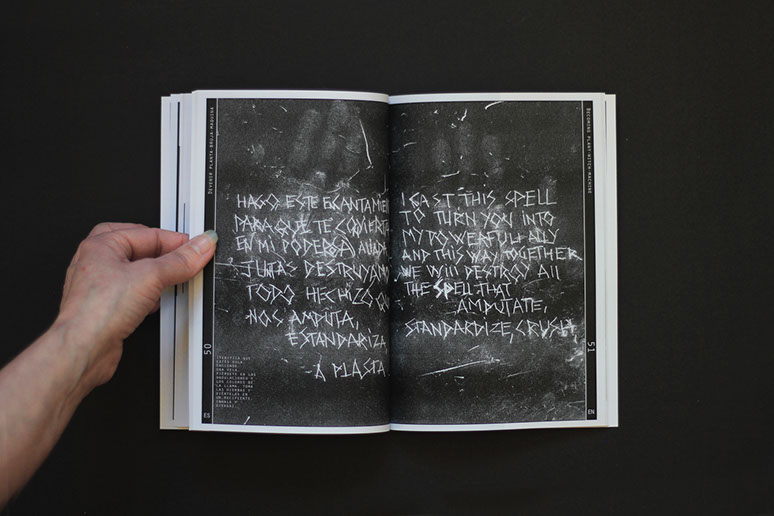 DEVENIR PLANTA-BRUJA-MAQUINA
HAGO ESTE ECANTAMIE
PARA QUE TE CONVIERTA
EN MI PODEROSA ALIAD
JUNTAS DESTRUYAMO
TODO HECHIZO QU
NOS AMPUTA,
ESTANDARIZA
APLASTA
50
ES
I CAST THIS SPELL
TO TURN YOU INTO
MY POWERFULL ALLY
AND THIS WAY TOGETHER
WE WILL DESTROY ALL
THE SPELL THAT
AMPUTATE,
STANDARDIZE, CRUSH
BECOMING PLANT-WITCH-MACHINE
51
EN